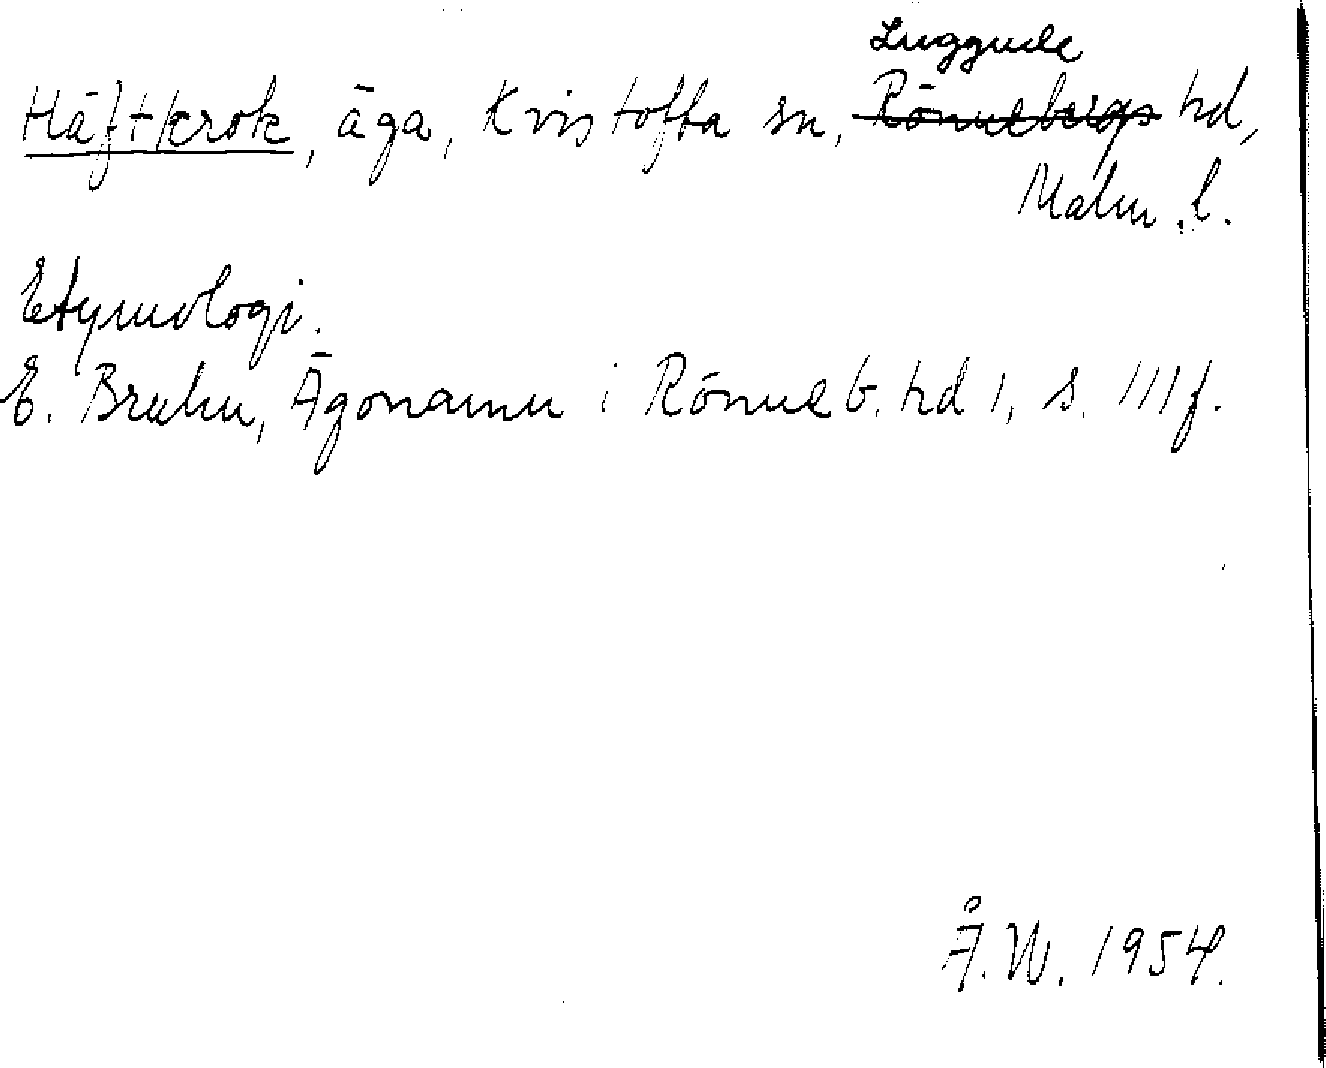 Luggude
Häftkrok, äga, Kvistofta sn, Rönnebergs hd,
Malm. l.
Etymologi.
E. Bruhn, Ägonamn i Rönneb. hd 1, s. 111 f.
Å.W. 1954.